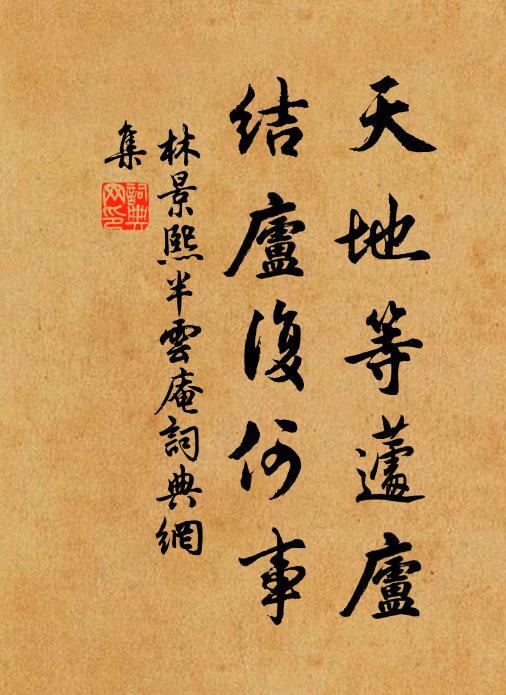 天地等蘧廬
結廬復何事
林景熙半雲庵詞典網
集
詞典网印